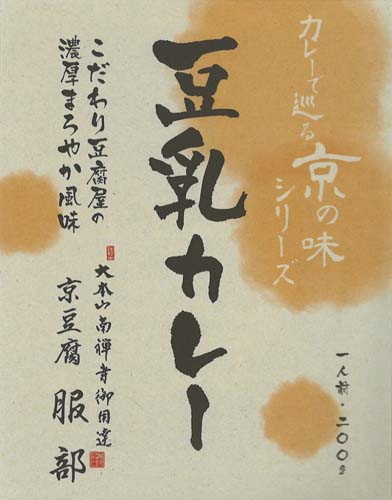 カレーで巡る
京の味
シリーズ
豆乳カレー
こだわり豆腐屋の
濃厚まろやか風味
大本山南禅寺御用達
京豆腐 服部
一人前・二〇〇g